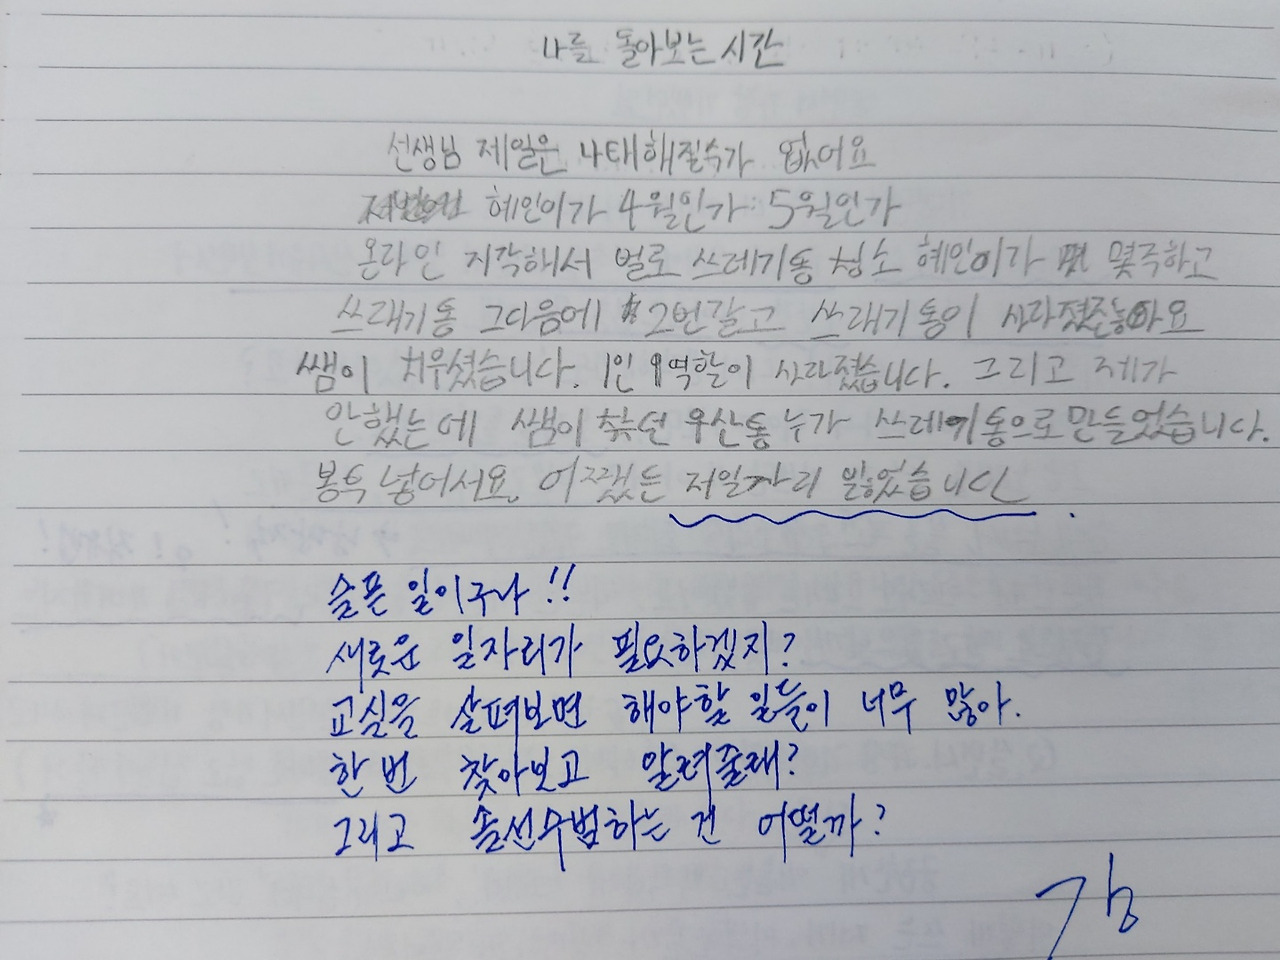 나를 돌아보는 시간
선생님 제일은 나태해질수가 없어요
혜인이가 4월인가 5월인가
온라인 지각해서 벌로 쓰레기통 청소 혜인이가 몇주하고
쓰래기통 그다음에 2번갈고 쓰래기통이
쌤이 치우셨습니다. 1인 1역할이 사라졌습니다. 그리고 제가
안했는데 쌤이 찾던 우산통 누가 쓰레기통으로 만들었습니다.
봉투 넣어서요. 어쨌든 저일자리 잃었습니다.
슬픈 일이구나!!
새로운 일자리가 필요하겠지?
교실을 살펴보면 해야할 일들이 너무 많아.
한번 찾아보고 알려줄래?
그리고 솔선수범하는 건 어떨까?